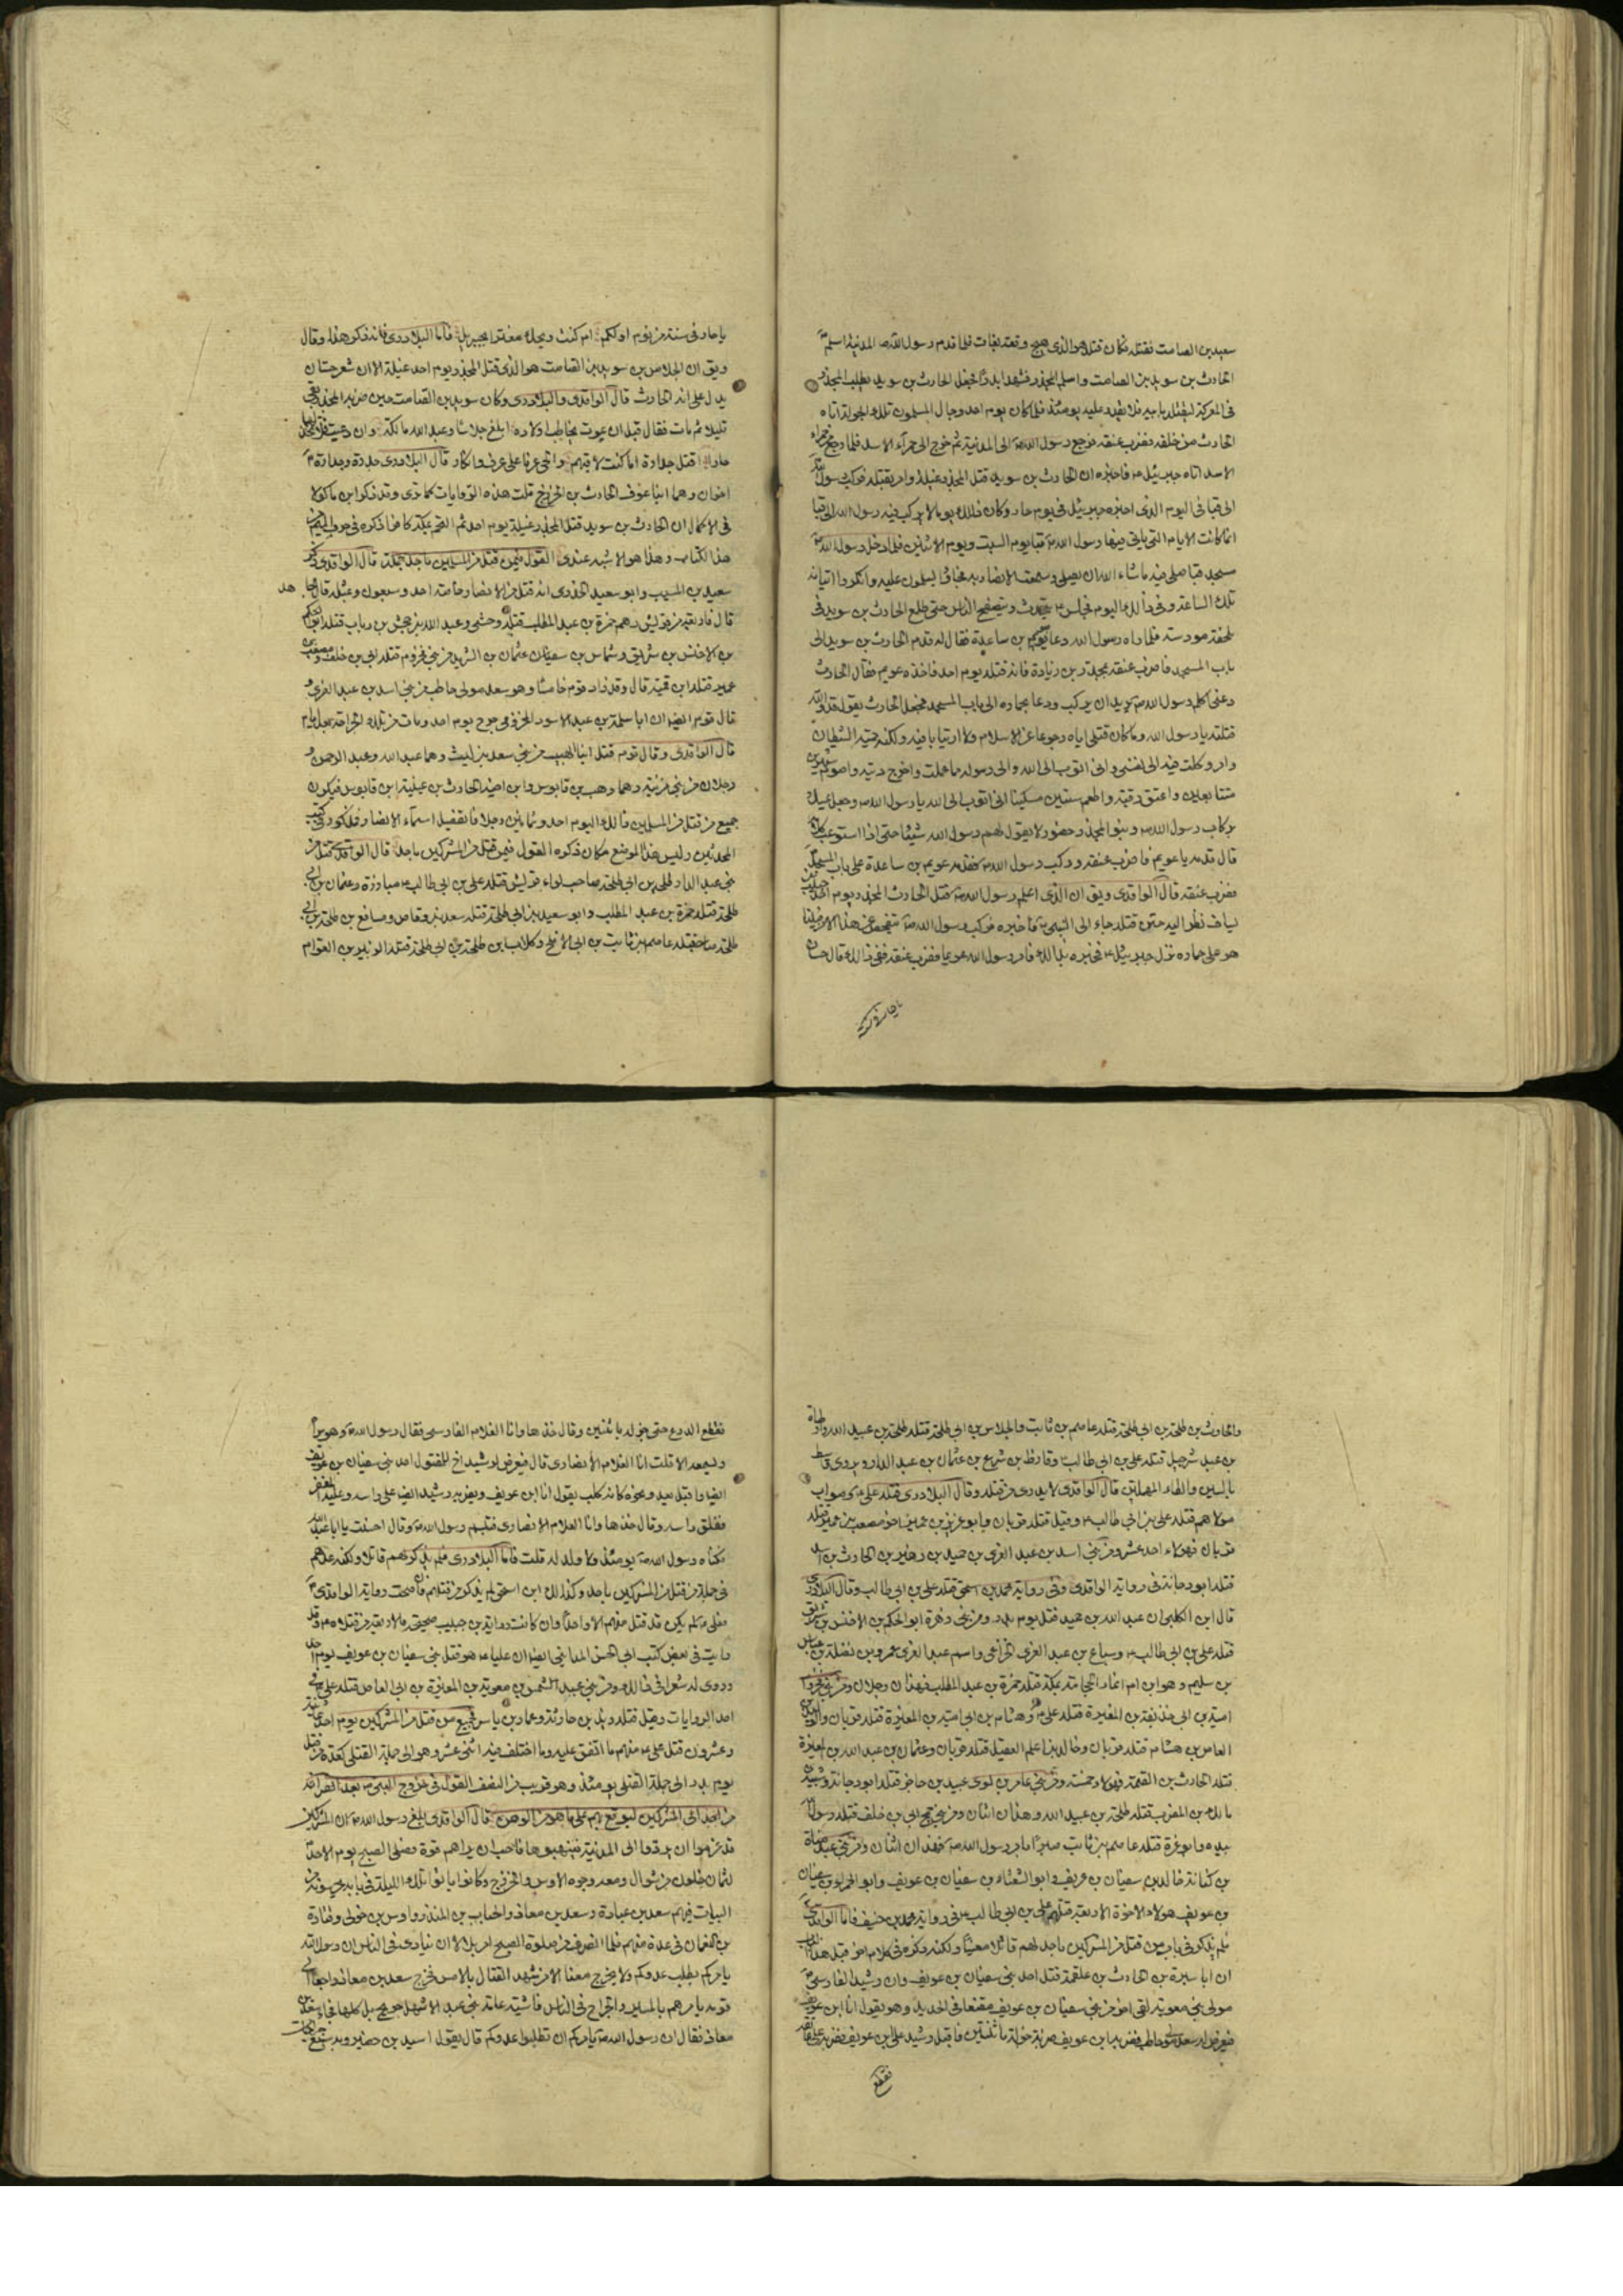 سويد بن الصامت فقتله فكان قتله هو الذى هيج وقعة بغاث فلما قدم رسول الله ص المدينة اسلم
الحارث بن سويد بن الصامت واسلم المجذر فشهدا بدرا فجعل الحارث بن سويد يطلب المجذر
فى المعركة ليقتله بابيه فلا يقدر عليه يومئذ فلما كان يوم احد وجال المسلمون تلك الجولة اتاه
الحارث من خلفه فضرب عنقه فرجع رسول الله ص الى المدينة ثم خرج الى حمرآء الاسد فلما رجع من حمراء
الاسد اتاه جبرئيل ع فاخبره ان الحارث بن سويد قتل المجذر غيلة وامره بقتله فركب رسول الله
الى قبا فى اليوم الذى اخبره جبرئيل فى يوم حار وكان ذلك يوما لا يركب فيه رسول الله الى قبا
انما كانت الايام التى ياتى فيها رسول الله ص قبا يوم السبت ويوم الاثنين فلما دخل رسول الله ص
مسجد قبا صلى فيه ما شاء الله ان يصلى وسمعت الانصار به فجاؤا يسلمون عليه وانكروا اتيانه
تلك الساعة وفى ذلك اليوم فجلس ع يتحدث ويتصفح الناس حتى طلع الحارث بن سويد فى
ملحفة مورسة فلما راه رسول الله دعا عويم بن ساعدة فقال له قدم الحارث بن سويد الى
باب المسجد فاضرب عنقه بمجذر بن زيادة فانه قتله يوم احد فاخذه عويم فقال الحارث
دعنى اكلم رسول الله ص يريد ان يركب ودعا بحماره الى باب المسجد فجعل الحارث يقول قد والله
قتلته يا رسول الله وما كان قتلى اياه رجوعا عن الاسلام ولا ارتيابا فيه ولكنه حمية الشيطان
وامر وكلت فيه الى نفسى وانى اتوب الى الله والى رسوله مما عملت واخرج ديته واصوم شهرين
متتابعين واعتق رقبة واطعم ستين مسكينا انى اتوب الى الله يا رسول الله ص وجعل يمسك
بركاب رسول الله ص وبنو المجذر حضور لا يقول لهم رسول الله شيئا حتى اذا استوعب كلامه
قال قدمه يا عويم فاضرب عنقه وركب رسول الله ص فقدمه عويم بن ساعدة على باب المسجد
فضرب عنقه قال الواقدى ويق ان الذى اعلم رسول الله ص قتل الحارث المجذر يوم احد حبيب بن
يساف نظر اليه حين قتله فجاء الى النبى ص فاخبره فركب رسول الله ص يتفحص عن هذا الامر فبينا
هو على حماره نزل جبرئيل ع فخبره بذلك فامر رسول الله عويما فضرب عنقه ففى ذلك قال حسان
يا حار فى سنة
يا حار فى سنة من نوم اولكم ام كنت ويحك مغترا بجبريل فاما البلاذرى فانه ذكر هذا وقال
ويق ان الجلاس بن سويد بن الصامت هو الذى قتل المجذر يوم احد غيلة الا ان شعر حسان
يدل على انه الحارث قال الواقدى والبلاذرى وكان سويد بن الصامت حين ضربه المجذر بقى
قليلا ثم مات فقال قبل ان يموت يخاطب اولاده ابلغ جلاسا وعبد الله مالكة وان دعيت فلا تخذلهما
حار اقتل جدارة اما كنت لاقيهم والحى عوفا على عرف وانكار قال البلاذرى جدرة وجدارة
اخوان وهما ابنا عوف الحارث بن الخزرج قلت هذه الروايات كما ترى وقد ذكر ابن ماكولا
فى الاكمال ان الحارث بن سويد قتل المجذر غيلة يوم احد ثم التحم بمكة كافرا ذكره فى حرف الميم من
هذا الكتاب وهذا هو الاشبه عندى القول فيمن قتل من المسلمين باحد جملة قال الواقدى ذكر
سعيد بن المسيب وابو سعيد الخدرى انه قتل من الانصار خاصة احد وسبعون وبمثله قال مجاهد
قال فاربعة من قريش وهم حمزة بن عبد المطلب قتله وحشى وعبد الله بن جحش بن رياب قتله ابو الحكم
بن الاخنس بن شريق وشماس بن سفيان عثمان بن الشريد من بنى مخزوم قتله ابى بن خلف ومصعب بن
عمير قتله ابن قمئة قال وقد زاد قوم خامسا وهو سعد مولى حاطب من بنى اسد بن عبد العزى و
قال قوم ايضا ان ابا سلمة بن عبد الاسود المخزومى جرح يوم احد ومات من تلك الجراحة بعد ايام
قال الواقدى وقال قوم قتل ابنا الهبيب من بنى سعد بن ليث وهما عبد الله وعبد الرحمن و
رجلان من بنى مزينة وهما وهب بن قابوس وابن اخيه الحارث بن عيينة ابن قابوس فيكون
جميع من قتل من المسلمين ذلك اليوم احد وثمانين رجلا فاما تفصيل اسمآء الانصار فمذكور فى كتب
المحدثين وليس هذا الموضع مكان ذكره القول فيمن قتل من المشركين باحد قال الواقدى قتل من
بنى عبد الدار طلحة بن ابى طلحة صاحب لواء قريش قتله على بن ابى طالب ع مبارزة وعثمان بن ابى
طلحة قتله حمزة بن عبد المطلب وابو سعيد بن ابى طلحة قتله سعد بن وقاص ومسافع بن طلحة بن ابى
طلحة قتله عاصم بن ثابت بن ابى الاقلح وكلاب بن طلحة بن ابى طلحة قتله الزبير بن العوام
والحارث بن طلحة بن ابى طلحة قتله عاصم بن ثابت والجلاس بن ابى طلحة قتله طلحة بن عبيد الله وارطاة
بن عبد شرحبيل قتله على بن ابى طالب ع وقارظ بن شريح بن عثمان بن عبد الدار ويروى قاسط
بالسين والطاء المهملتين قال الواقدى لا يدرى من قتله وقال البلاذرى قتله على ع وصواب
مولاهم قتله على بن ابى طالب ع وقيل قتله قزمان وابو عزيز بن عمير اخو مصعب بن عمير قتله
قزمان فهولاء احد عشر ومن بنى اسد بن عبد العزى بن حميد بن زهير بن الحارث بن اسد
قتله ابو دجانة فى رواية الواقدى وفى رواية محمد بن اسحق قتله على بن ابى طالب وقال البلاذرى
قال ابن الكلبى ان عبد الله بن حميد قتل يوم بدر ومن بنى زهرة ابو الحكم بن الاخنس بن شريق
قتله على بن ابى طالب ع وسباع بن عبد العزى الخزاعى واسم عبد العزى عمرو بن نضلة بن عباس
بن سليم وهو ابن ام انمار الحجامة بمكة قتله حمزة بن عبد المطلب فهذان رجلان ومن بنى مخزوم
امية بن ابى حذيفة بن المغيرة قتله على ع وهشام بن ابى امية بن المغيرة قتله قزمان والوليد بن
العاص بن هشام قتله قزمان وخالد بن اعلم العقيلى قتله قزمان وعثمان بن عبد الله بن المغيرة
قتله الحارث بن الصمة فهولاء خمسة ومن بنى عامر بن لوى عبيد بن حاجز قتله ابو دجانة وشيبة بن
مالك بن المضرب قتله طلحة بن عبيد الله وهذان اثنان ومن بنى جمح ابى بن خلف قتله رسول الله
بيده وابو عزة قتله عاصم بن ثابت صبرا بامر رسول الله ص فهذان اثنان ومن بنى عبد مناة
بن كنانة خالد بن سفيان بن عويف وابو الشعثاء بن سفيان بن عويف وابو الحمراء بن سفيان
بن عويف هولاء الاخوة الاربعة قتلهم على بن ابى طالب ع فى رواية محمد بن حبيب فاما الواقدى
فلم يذكر فى باب من قتل من المشركين باحد لهم قاتلا معينا ولكنه ذكر فى كلام اخر قبل هذا الباب
ان ابا سبرة بن الحارث بن علقمة قتل احد بنى سفيان بن عويف وان رشيد الفارسى
مولى بنى معوية لقى اخر من بنى سفيان بن عويف مقنعا فى الحديد وهو يقول انا ابن عويف
فيعرض له سعد مولى حاطب فضربه ابن عويف ضربة جزله باثنتين فاقبل رشيد على ابن عويف فضربه على عاتقه
فقطع
فقطع الدرع حتى جزله باثنين وقال خذها وانا الغلام الفارسى فقال رسول الله ص وهو يراه
ويسمعه الا قلت انا الغلام الانصارى قال فيعرض لرشيد اخ للمقتول احد بنى سفيان بن عويف
ايضا واقبل يعدو نحوه كانه كلب يقول انا ابن عويف ويضربه رشيد ايضا على راسه وعليه المغفر
ففلق راسه وقال خذها وانا الغلام الانصارى فتبسم رسول الله ص وقال احسنت يا ابا عبد الله
فكناه رسول الله ص يومئذ ولا ولد له قلت فاما البلاذرى فلم يذكر لهم قاتلا ولكنه عدهم
فى جملة من قتل من المشركين باحد وكذلك ابن اسحق لم يذكر من قتلهم فان صحت رواية الواقدى
فعلى ع لم يكن قد قتل منهم الا واحدا وان كانت رواية ابن حبيب صحيحة فالاربعة من قتلاه ع وقد
رايت فى بعض كتب ابى الحسن المداينى ايضا ان عليا ع هو قتل بنى سفيان بن عويف يوم احد
وروى له شعرا فى ذلك ومن بنى عبد الشمس بن معوية بن المغيرة بن ابى العاص قتله على ع فى
احد الروايات وقيل قتله زيد بن حارثة وعمار بن ياسر فجميع من قتل من المشركين يوم احد ثمانية
وعشرون قتل على ع منهم ما اتفق عليه وما اختلف فيه اثنى عشر وهو الى جملة القتلى كعدة من قتل
يوم بدر الى جملة القتلى يومئذ وهو قريب من النصف القول فى خروج النبى ص بعد انصرافه
من احد الى المشركين ليوقع بهم على ما هو من الوهن قال الواقدى بلغ رسول الله ص ان المشركين
قد عزموا ان يردوا الى المدينة فينهبوها فاحب ان يراهم قوة فصلى الصبح يوم الاحد
لثمان خلون من شوال ومعه وجوه الاوس والخزرج وكانوا باتوا تلك الليلة فى بابه يحرسونه من
البيات فيهم سعد بن عبادة وسعد بن معاذ والحباب بن المنذر واوس بن خولى وقتادة
بن النعمان فى عدة منهم فلما انصرف من صلوة الصبح امر بلالا ان ينادى فى الناس ان رسول الله
يامركم بطلب عدوكم ولا يخرج معنا الا من شهد القتال بالامس فخرج سعد بن معاذ راجعا الى
قومه يامرهم بالمسير والجراح فى الناس فاشية عامة بنى عبد الاشهل جريح بل كلها فجاء سعد بن
معاذ فقال ان رسول الله ص يامركم ان تطلبوا عدوكم قال يقول اسيد بن حضير وبه سبع جراحات